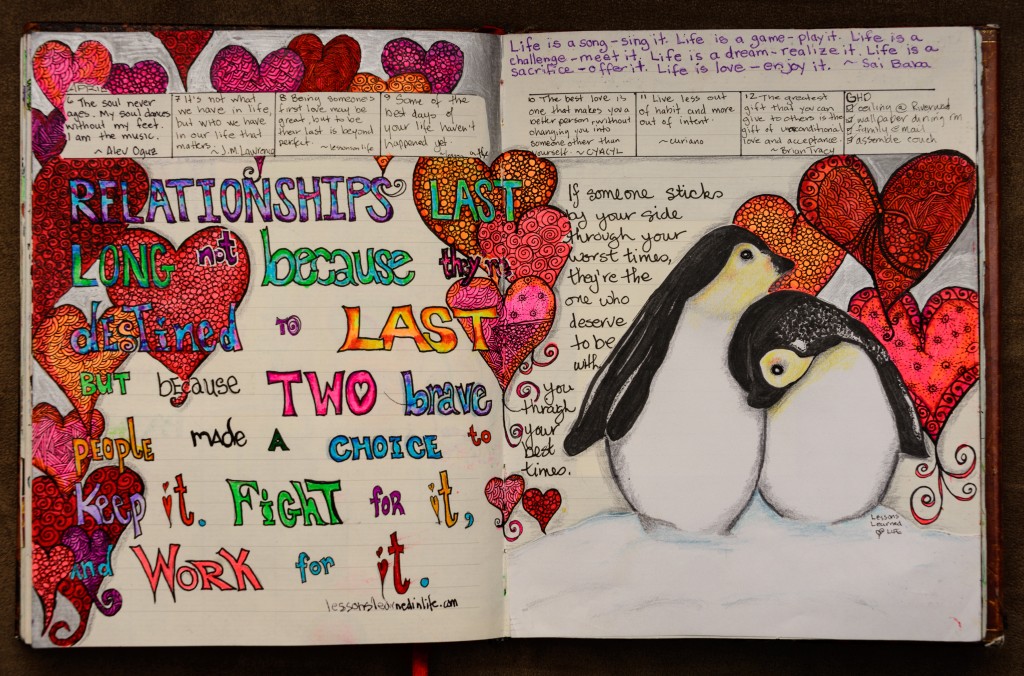 APRIL
6 The soul never
ages. My soul dances
without my feet.
I am the music.
~ Alev Oguz
7 It's not what
we have in life,
but who we have
in our life that
matters. ~ J.M Laurence
8 Being someone's
first love may be
great, but to be
their last is beyond
perfect. ~ lemonsn life
9 Some of the
best days of
your life haven't
happened yet
RELATIONSHIPS LAST
LONG not because they're
destined TO LAST
BUT because TWO brave
people made A CHOICE to
Keep it. FIGHT for it,
and WORK for it.
lessonslearnedinlife.com
Life is a song - sing it. Life is a game - play it. Life is a
challenge - meet it. Life is a dream - realize it. Life is a
sacrifice - offer it. Life is love - enjoy it. ~ Sai Baba
10 The best love is
one that makes you a
better person, without
changing you into
someone other than
yourself. ~ CYACYL
11 Live less out
of habit and more
out of intent.
~ curiano
12 The greatest
gift that you can
give to others is the
gift of unconditional
love and acceptance.
~ Brian Tracy
GHD
ceiling @ Riverwood
wallpaper dining rm
family @ mail
assemble couch
If someone sticks
by your side
through your
worst times,
they're the
one who
deserve
to be
with
you
through
your
best
times.
Lessons
Learned
Life